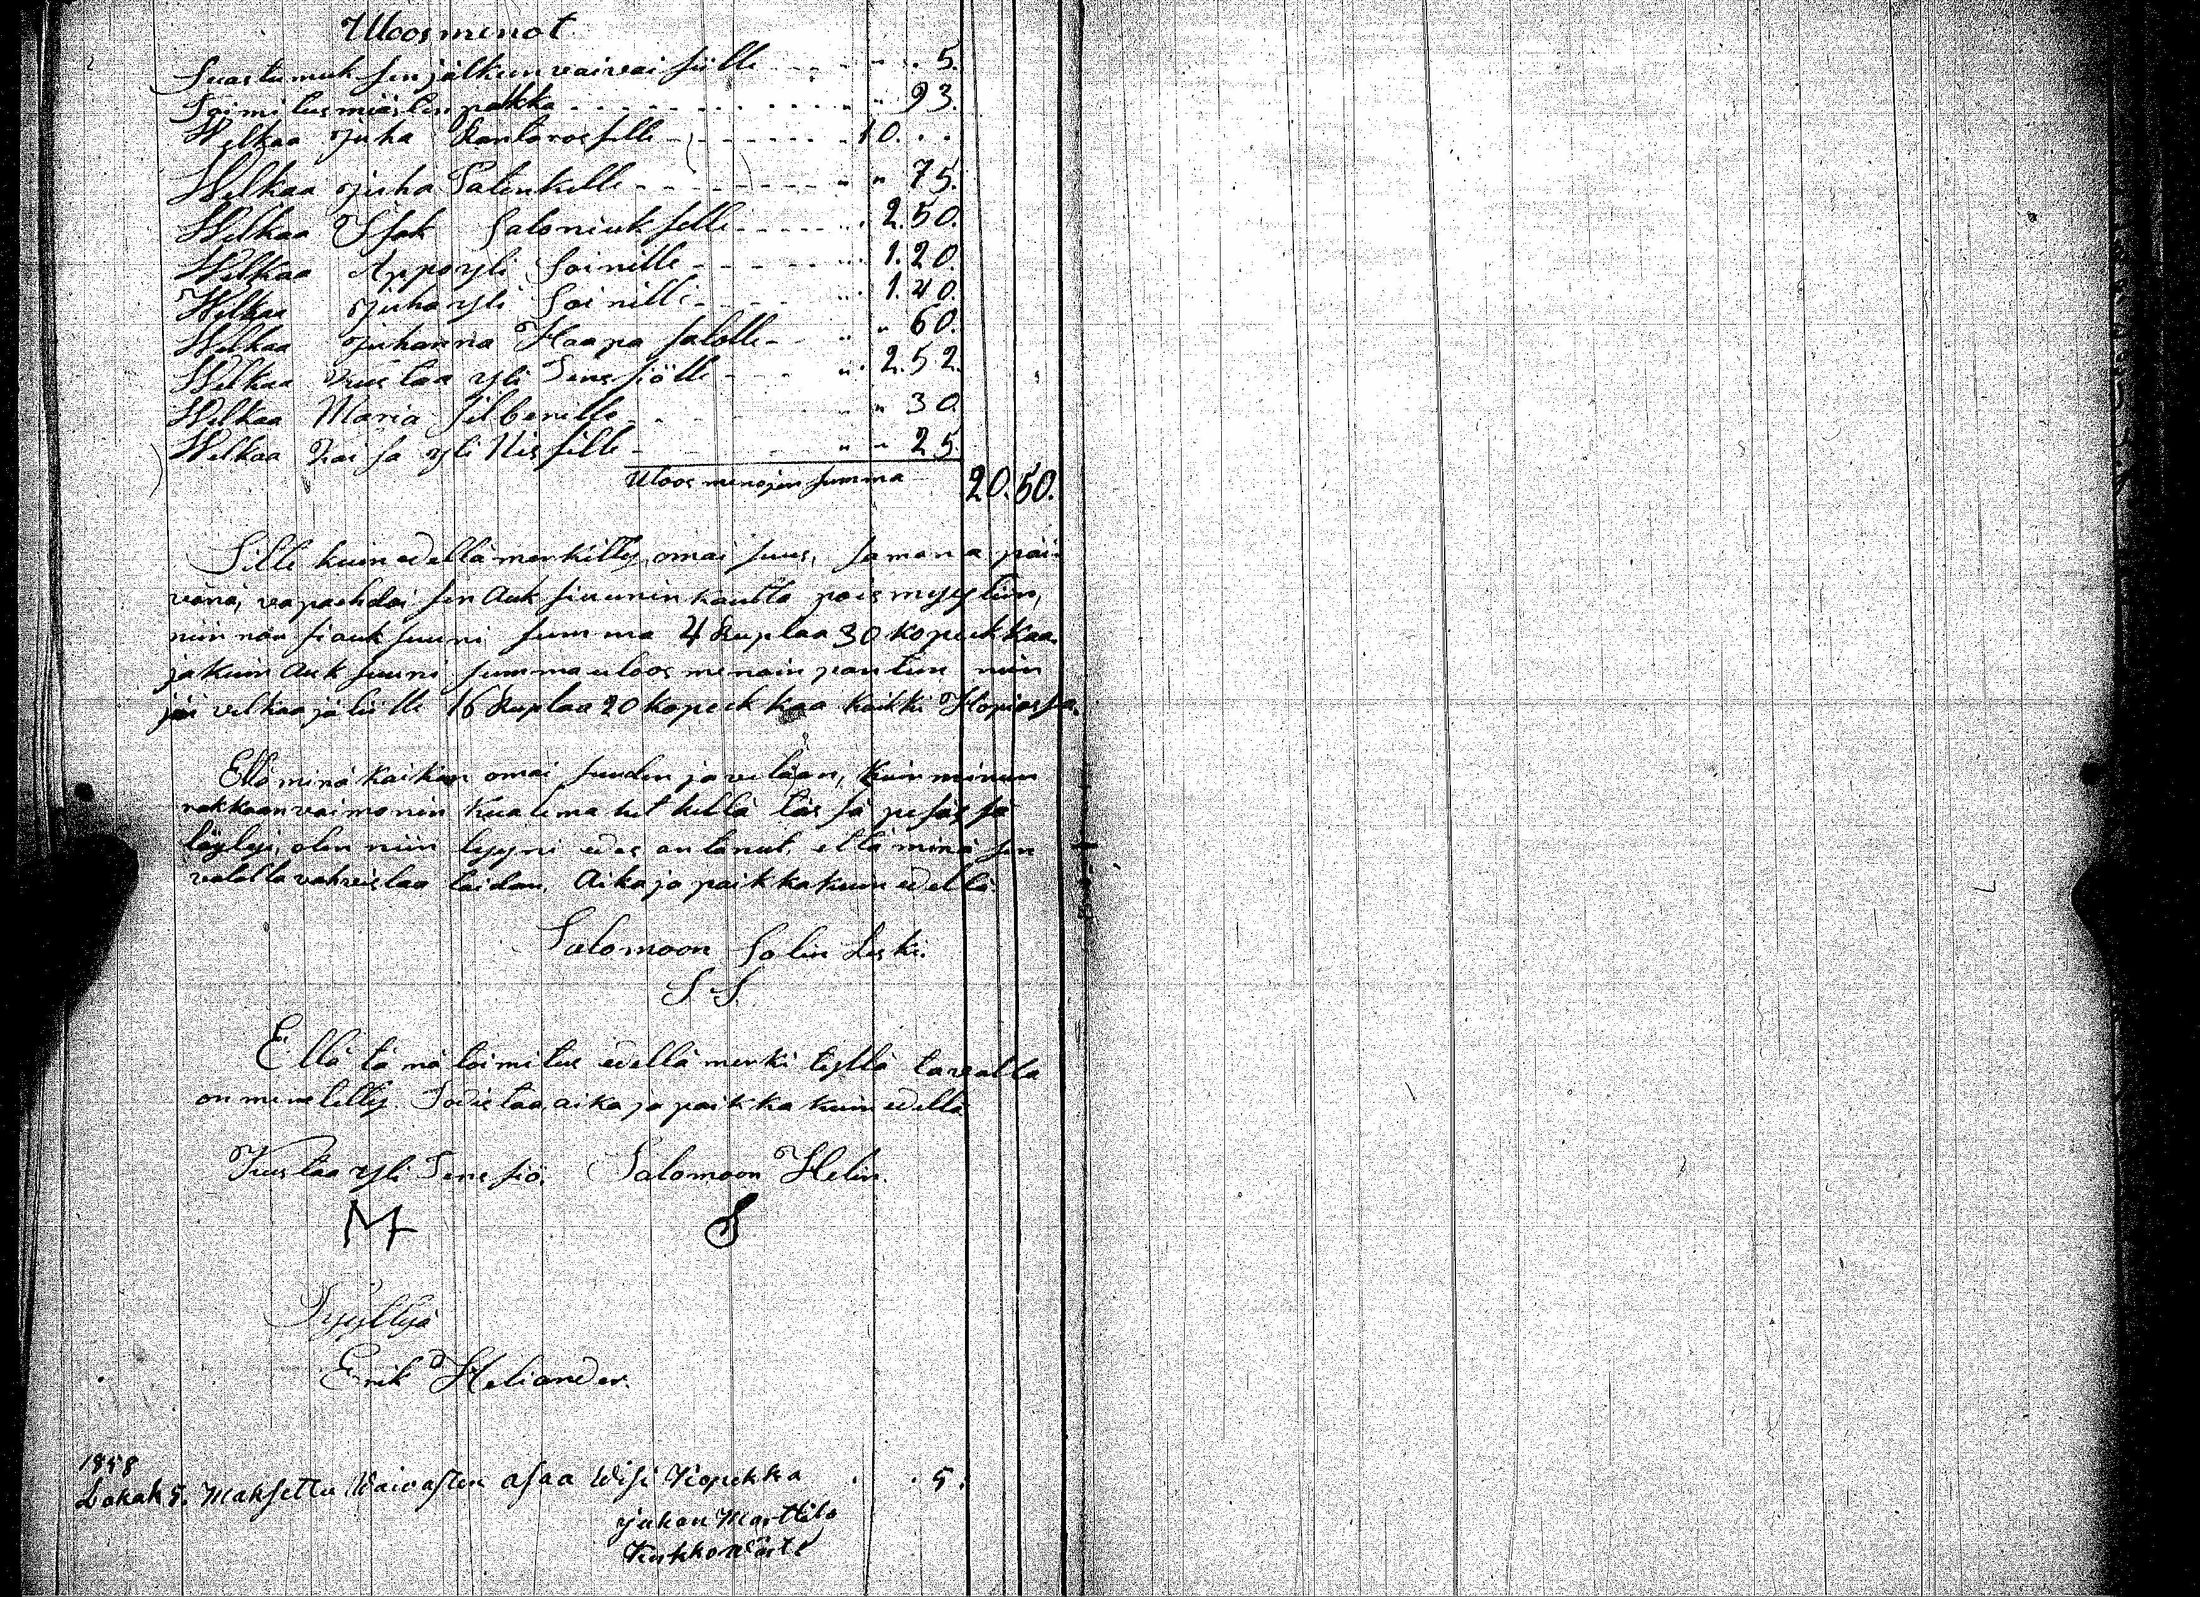 Uloosmenot
Suastumuk sen jälkeen vaivaisille - - - - " . 5.
Toimitusmiästen palkka - - - - " 93.
Welkaa Juha Kantorosille - - - - 10. . .
Welkaa Juha Palenkille - - - - " " 75.
Welkaa Isak Saloniukselle - - - - . 2.50.
Welkaa Appo yli Soinille - - - - 1.20.
Welkaa Juha yli Soinille - - - - 1.40.
Welkaa Juhanna Haapa salolle - - " " 60.
Welkaa Kustaa yli Tenssiölle - - - " 2.52.
Welkaa Maria Silbenille - - - - " 30.
Welkaa Kaisa yli Nissille - - - - " " 25.
Uloos menojen summa 20.50.
Sille kuin edellä merkitty omaisuus, samana päi-
vänä, vapaehdoisen Auksiuunin kautta pois myytiin,
niin nousi auksuuni summa 4 Ruplaa 30 kopeekkaa.
ja kuin Auksuuni summa uloos menoin pantiin niin
jäi velkaa jälille 16 Ruplaa 20 kopeekkaa kaikki Hopiassa.
Että minä kaiken omaisuuden ja velaan, kuin minun
rakkaan vaimonin kualema hetkellä tässä pesässä
löytyi, olen niin tyyni edes antanut, että minä sen
valalla vahvistaa taidan, Aika ja paikka kuin edellä.
Salomoon Solin Leski.
S. S.
Että tänä toimitus edellä merkityllä tavalla
on menetetty. Todistaa, aika ja paikka kuin edellä
Kustaa yli Tenssiö. Salomoon Helin.
M S
Tyyttyjä
Erik Heliander.
1858
Lokak 5. Maksettu Waivasten asaa Wisi Kopekka . . 5.
Juhan Marttila
Kirkkowärti